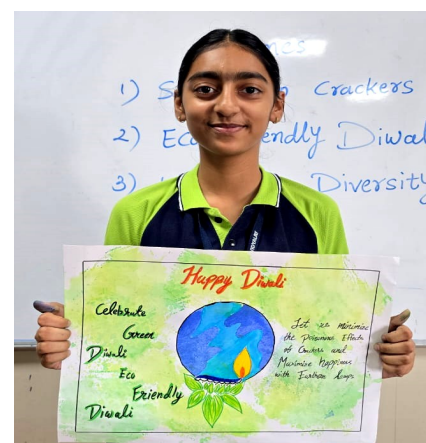 1) S Crackers
2) Eco Friendly Diwal
3) Diversity
Happy Diwali
Celebrate
Green
Diwali
Eco
Friendly
Diwali
Let us minimise
the Poisonous Effects
of Crackers and
Maximise Happiness
with Earthen Lamps